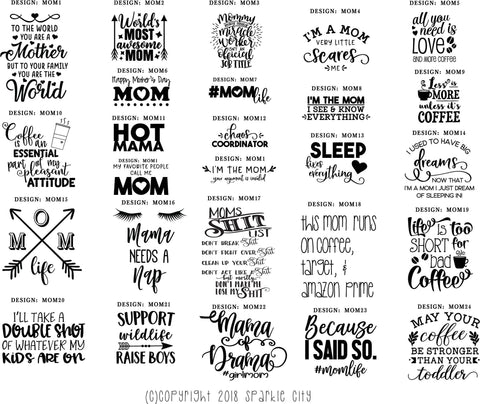 DESIGN: MOM1
TO THE WORLD
YOU ARE A
Mother
BUT TO YOUR FAMILY
YOU ARE THE
World
DESIGN: MOM2
World's
MOST
awesome
MOM
DESIGN: MOM3
Mommy
miracle
worker
official
JOB TITLE
DESIGN: MOM4
I'M A MOM
VERY LITTLE
Scares
ME
DESIGN: MOM5
all you
need is
LOVE
AND MORE COFFEE
DESIGN: MOM6
Happy Mother's Day
MOM
DESIGN: MOM7
#MOMlife
DESIGN: MOM8
I'M THE MOM
I SEE & KNOW
EVERYTHING
DESIGN: MOM9
Less is
MORE
unless it's
COFFEE
DESIGN: MOM10
Coffee
is an
ESSENTIAL
part of my
pleasant
ATTITUDE
DESIGN: MOM11
HOT
MAMA
DESIGN: MOM11
MY FAVORITE PEOPLE
CALL ME
MOM
DESIGN: MOM12
chaos
COORDINATOR
DESIGN: MOM1
I'M THE MOM
your argument is invalid
DESIGN: MOM13
SLEEP
fixes
everything
DESIGN: MOM14
I USED TO HAVE BIG
dreams
NOW THAT
I'M A MOM I JUST DREAM
OF SLEEPING IN!
DESIGN: MOM15
M O M
life
DESIGN: MOM16
Mama
NEEDS A
Nap
DESIGN: MOM17
MOMS
SHIT
LIST
DON'T BREAK Shit
DON'T FIGHT OVER Shit
CLEAN UP YOUR Shit
DON'T ACT LIKE A Shit
but mostly
DON'T MAKE ME
LOSE MY SHIT
DESIGN: MOM18
this mom runs
on coffee,
target, &
amazon prime
DESIGN: MOM19
Life is too
SHORT
for bad
Coffee
DESIGN: MOM20
I'LL TAKE A
DOUBLE SHOT
OF WHATEVER MY
KIDS ARE ON
DESIGN: MOM21
SUPPORT
wildlife
RAISE BOYS
DESIGN: MOM22
Mama
of
Drama
#girlmom
DESIGN: MOM23
Because
I SAID SO.
#momlife
DESIGN: MOM24
MAY YOUR
coffee
BE STRONGER
THAN YOUR
toddler
(C)COPYRIGHT 2018 SPARKLE CITY